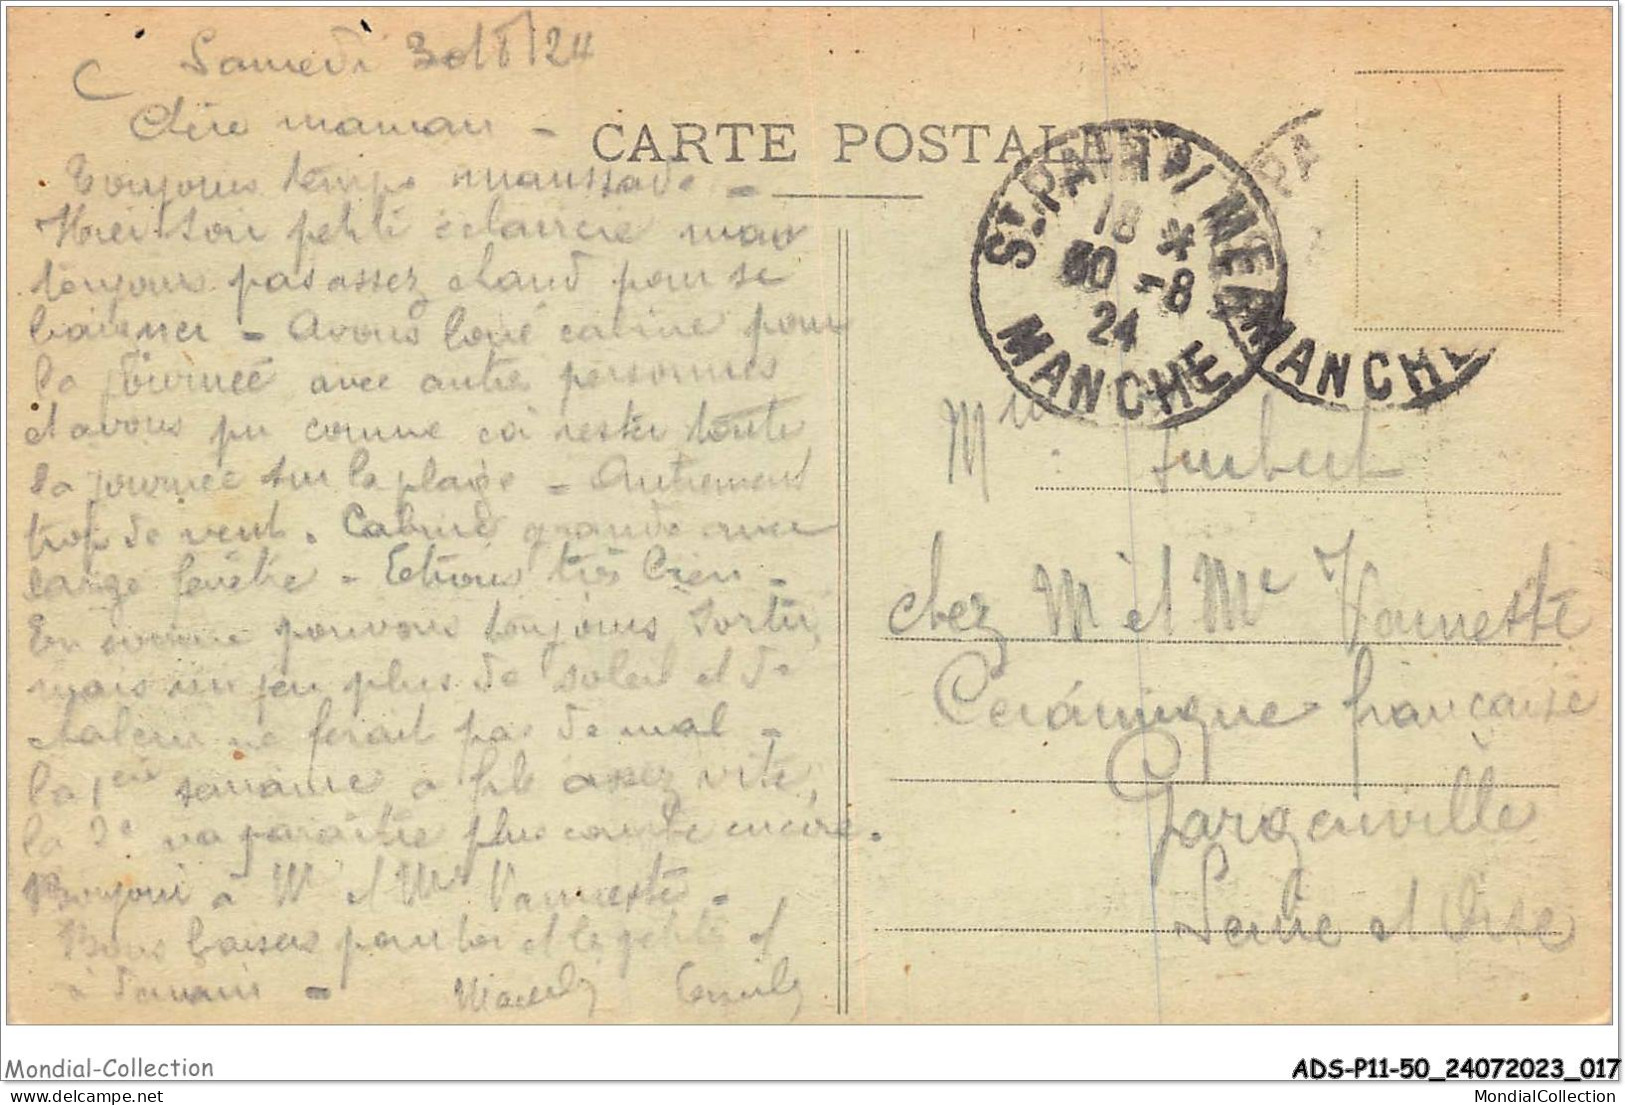 Samedi 30/8/24
Chère maman -
CARTE POSTALE
Toujours temps maussade -
Hier soir petite éclaircie mais
toujours pas assez chaud pour se
baigner - Avons loué cabine pour
la journée avec autres personnes
et avons pu comme ça rester toute
la journée sur la plage - Autrement
trop de vent. Cabine grande avec
large fenêtre - Etions très bien -
En somme pouvons toujours sortir,
mais un peu plus de soleil et de
chaleur ne ferait pas de mal -
la 1ère semaine a filé assez vite,
la 2e va paraître plus courte encore.
Bonjour à Mr et Me Vanneste -
Bons baisers pour toi et la petite et
à demain -
ST-PAIR S/ MER
18 *
30 -8
24
MANCHE
PA
MANCHE
Mme Imbert
chez Mr et Me Vanneste
Céramique française
Gargenville
Seine et Oise
Mondial-Collection
ADS-P11-50_24072023_017
MondialCollection